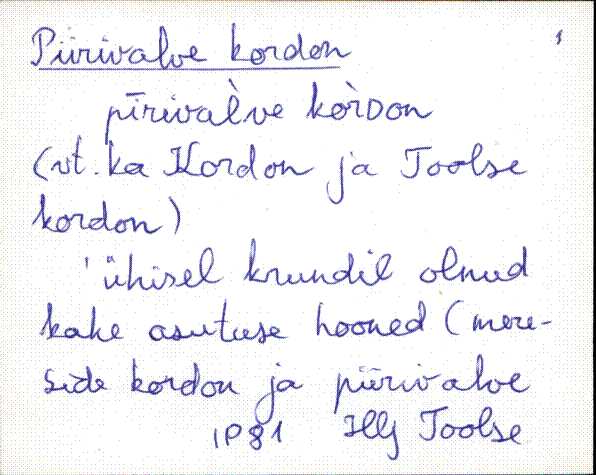 Piirivalve kordon
pīrival̀ve kòrDon
(vt. ka Kordon ja Toolse
kordon)
'ühisel krundil olnud
kahe asutuse hooned (mere-
side kordon ja piirivalve
IP81 Hlj Toolse